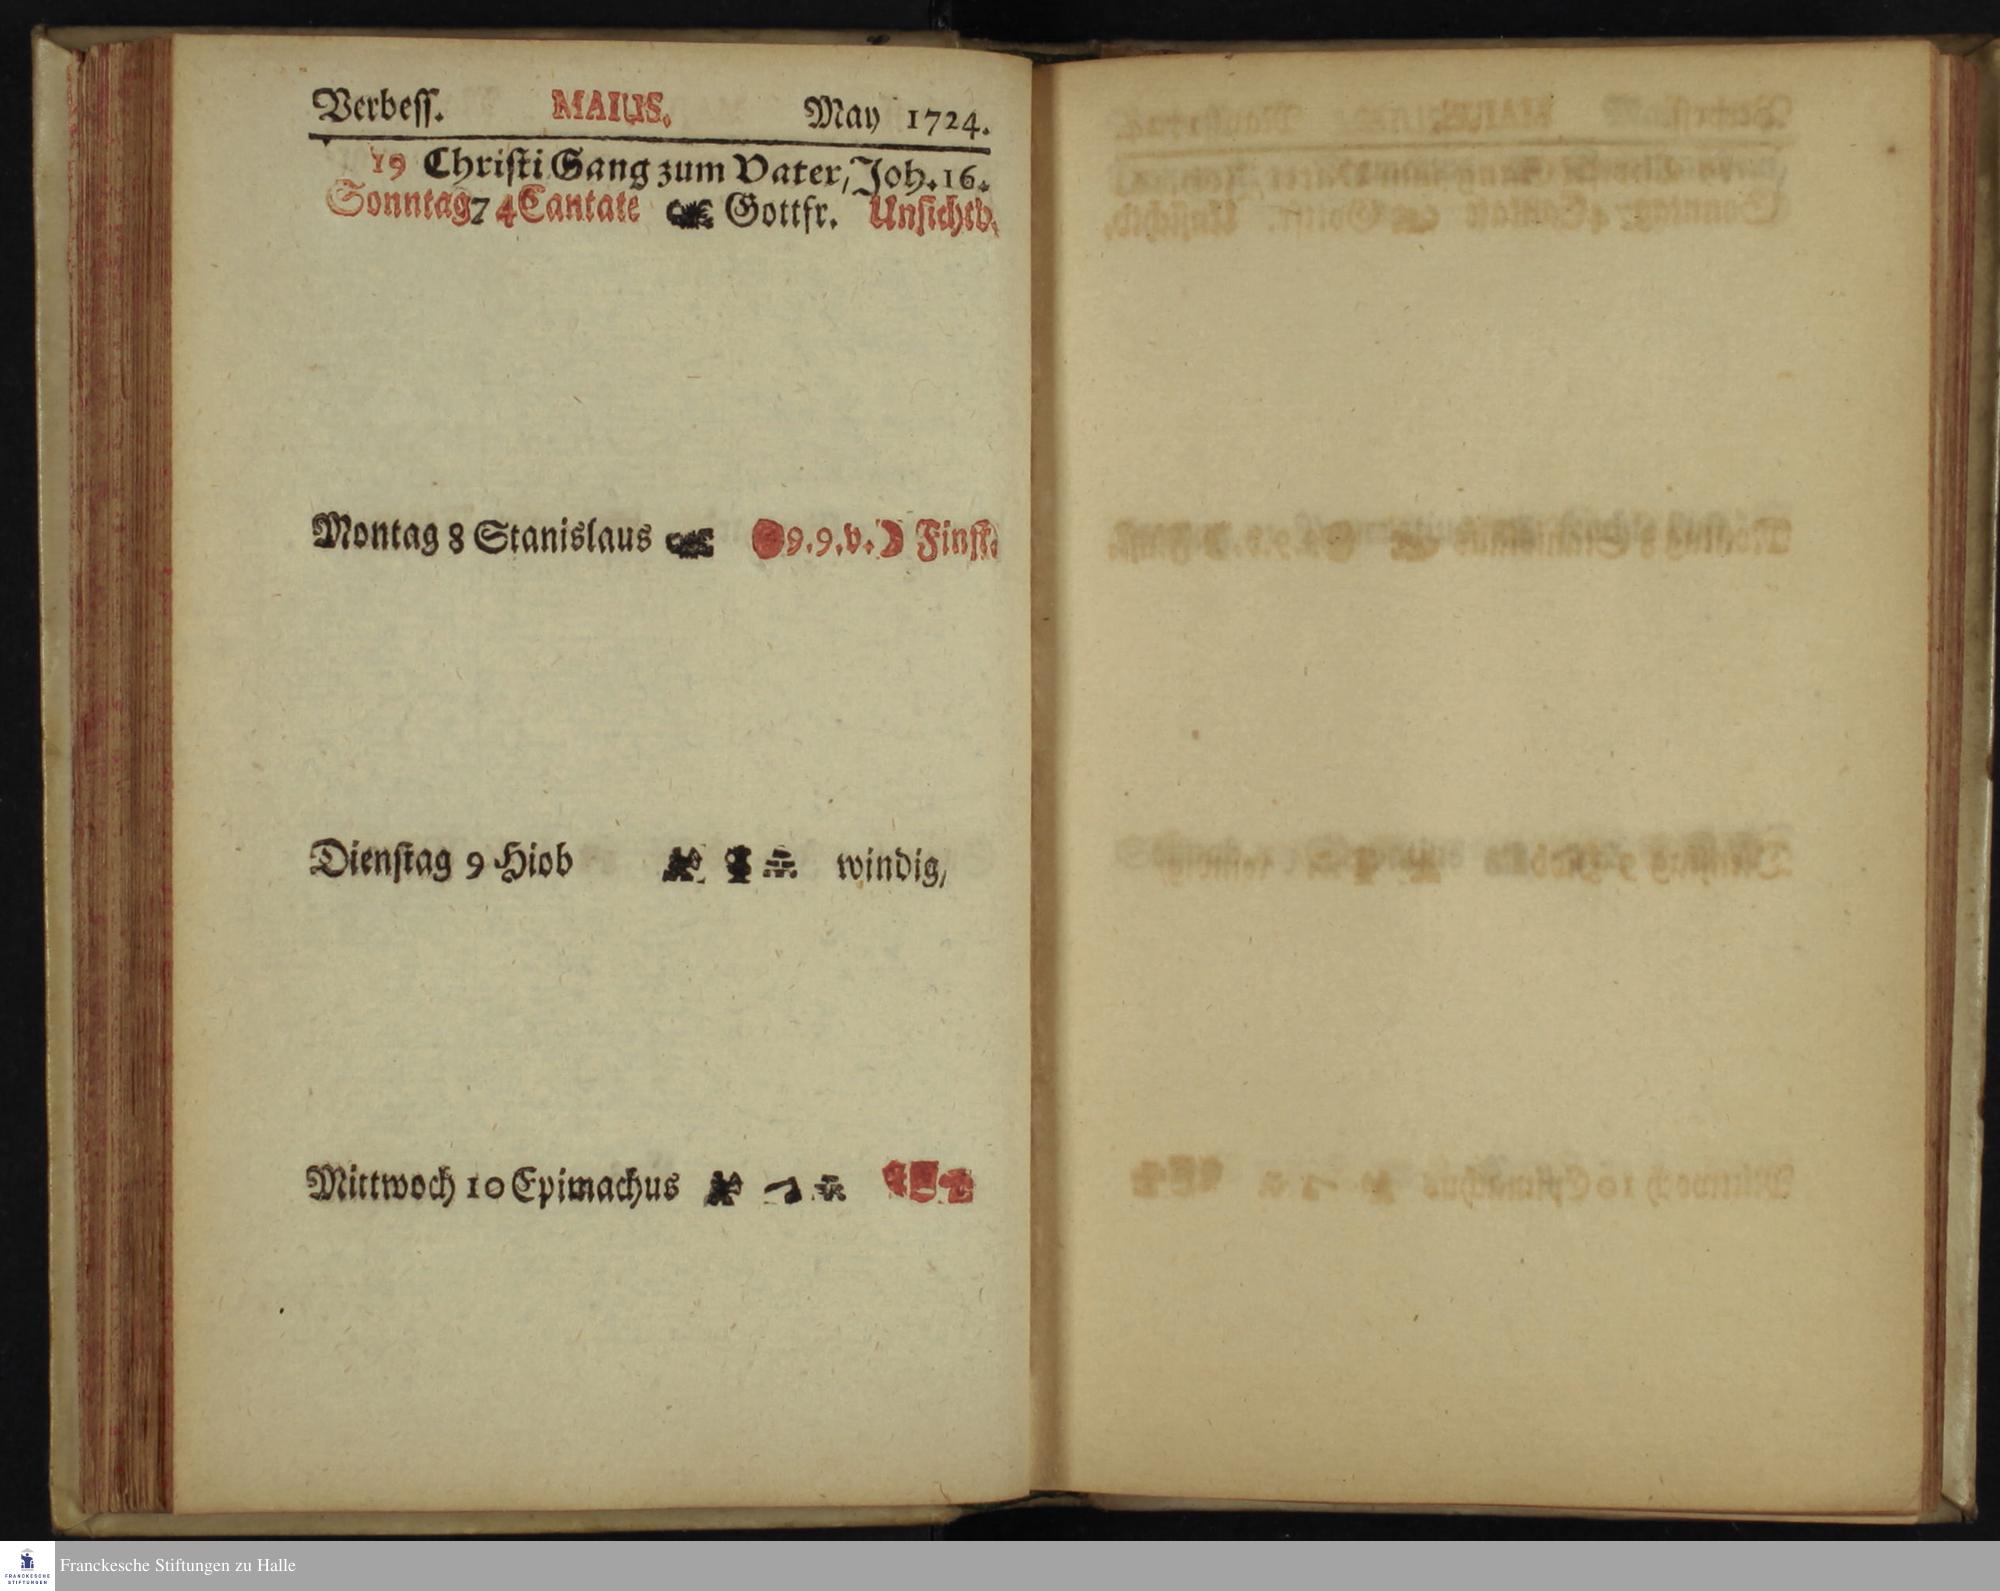 Verbeſſ. MAIUS. May 1724.
19 Chriſti Gang zum Vater, Joh. 16.
Sonntag 7 4 Cantate Gottfr. Unſichtb.
Montag 8 Stanislaus 9. 9. v. Finſt.
Dienſtag 9 Hiob windig,
Mittwoch 10 Epimachus
Franckesche Stiftungen zu Halle
FRANCKESCHE
STIFTUNGEN